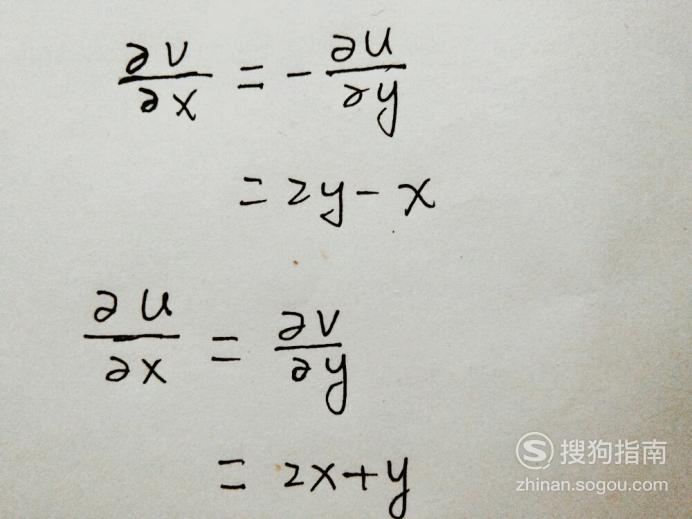 ∂v/∂x = -∂u/∂y
= 2y - x
∂u/∂x = ∂v/∂y
= 2x+y
搜狗指南
zhinan.sogou.com